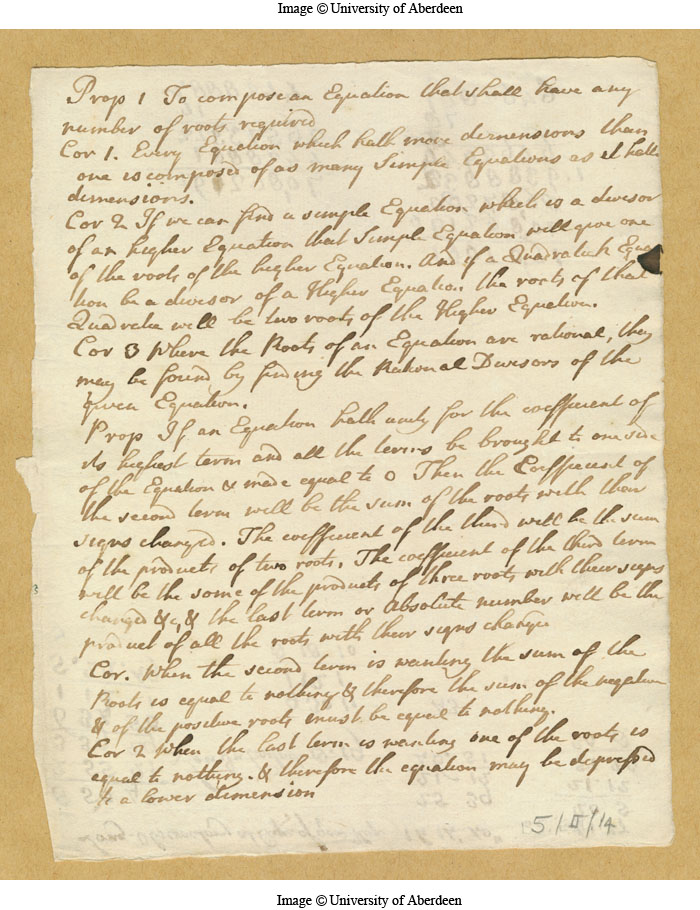 Image © University of Aberdeen
Prop 1 To compose an Equation that shall have any
number of roots required
Cor 1. Every Equation which hath more dimensions than
one is composed of as many Simple Equations as it hath
dimensions.
Cor 2 If we can find a simple Equation which is a divisor
of an higher Equation that Simple Equation will give one
of the roots of the higher Equation. And if a Quadratick Equa
tion be a divisor of a Higher Equation the roots of that
Quadratic will be two roots of the Higher Equation.
Cor 3 Where the Roots of an Equation are rational, they
may be found by finding the Rational Divisors of the
given Equation.
Prop If an Equation hath unity for the coefficient of
its highest term and all the terms be brought to one side
of the Equation & made equal to 0 Then the Coefficient of
the second term will be the sum of the roots with their
signs changed. The coefficient of the third will be the sum
of the products of two roots. The coefficient of the third term
will be the some of the products of three roots with their signs
changed &c, & the last term or Absolute number will be the
product of all the roots with their signs change
Cor. When the second term is wanting the sum of the
Roots is equal to nothing & therefore the sum of the negative
& of the positive roots must be equal to nothing.
Cor 2 When the last term is wanting one of the roots is
equal to nothing. & therefore the equation may be depressed
to a lower dimension
5/II/14
Image © University of Aberdeen